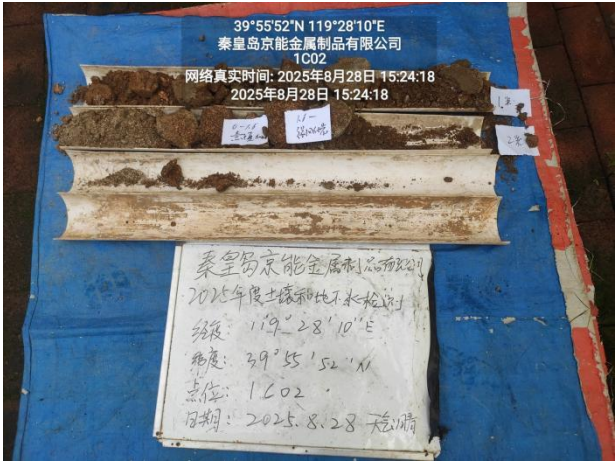 39°55'52"N 119°28'10"E
秦皇岛京能金属制品有限公司
1C02
网络真实时间: 2025年8月28日 15:24:18
2025年8月28日 15:24:18
1米
2米
0-1.6
1.6-
秦皇岛京能金属制品有限公司
2025年度土壤和地下水检测
经度: 119°28'10"E
纬度: 39°55'52"N
点位: 1C02
日期: 2025.8.28 天气:晴